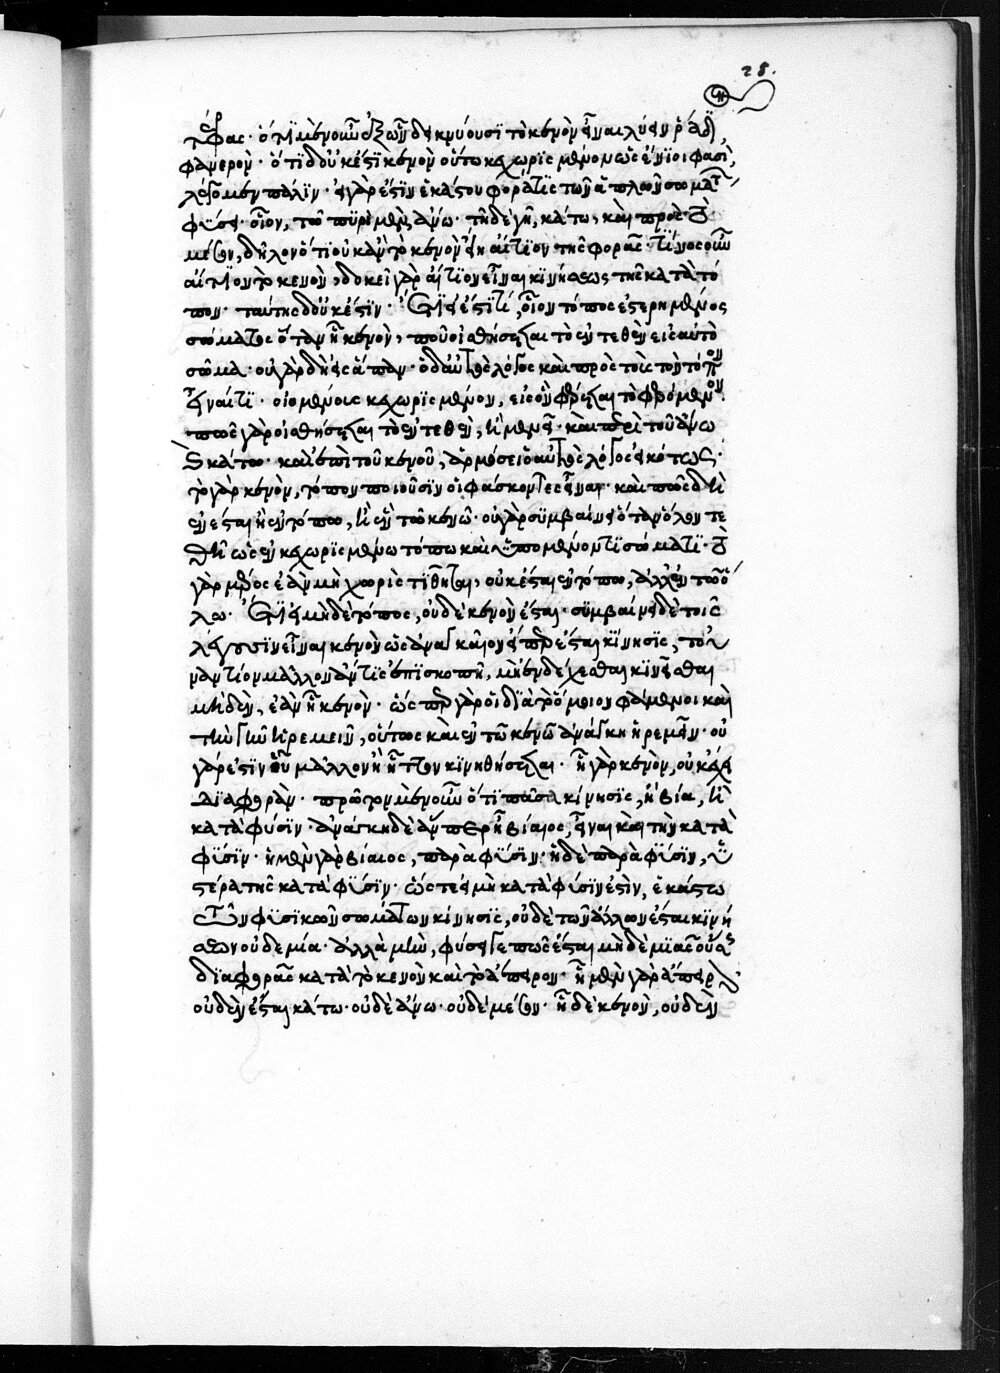 τρόπος· ὅτι μὲν οὖν ἐξ ὧν δεικνύουσι τὸ κενὸν εἶναι λύειν ῥάδι,
φανερόν· ὅτι δ' οὐκ ἔστι κενὸν οὕτω κεχωρισμένον ὡς ἔνιοι φασί,
λέγωμεν πάλιν· εἰ γὰρ ἔστιν ἑκάστου φορά τις τῶν ἁπλῶν σωμάτ
φύσει· οἷον, τῶ πυρὶ μὲν ἄνω· τῆ δὲ γῆ, κάτω, καὶ πρὸς τὸ
μέσον, δῆλον ὅτι οὐκ ἂν τὸ κενὸν εἴη αἴτιον τῆς φορᾶς· τίνος οὖν
αἴτιον τὸ κενὸν, δοκεῖ γὰρ αἴτιον εἶναι κινήσεως τῆς κατὰ τό
πον· ταύτης δ' οὐκ ἔστιν· ἔτι εἰ ἔστι τί, οἷον τόπος ἐστερημένος
σώματος ὅταν ἦ κενόν, ποῦ οἰσθήσεται τὸ ἐντεθὲν εἰς αὐτὸ
σῶμα· οὐ γὰρ δὴ εἰς ἅπαν· ὁ δ' αὐτὸς λόγος καὶ πρὸς τοὺς τὸν τόπον
εἶναί τι· οἰομένοις κεχωρισμένον, εἰς ὃν φέρεται τὸ φερόμενον·
πῶς γὰρ οἰσθήσεται τὸ ἐντεθὲν, ἢ μενεῖ· καὶ περὶ τοῦ ἄνω
καὶ κάτω· καὶ ἐπὶ τοῦ κενοῦ, ἁρμόσει ὁ αὐτὸς λόγος εἰκότως·
τὸ γὰρ κενὸν, τόπον ποιοῦσιν οἱ φάσκοντες εἶναι· καὶ πῶς δὴ
ἐνέσται ἢ ἐν τόπω, ἢ ἐν τῶ κενῶ· οὐ γὰρ συμβαίνει ὅταν ὅλον τε
θῆ ὡς ἐν κεχωρισμένω τόπω καὶ ὑπομένοντι σώματι· τὸ
γὰρ μέρος ἐὰν μὴ χωρὶς τιθῆται, οὐκ ἔσται ἐν τόπω, ἀλλ' ἐν τῶ ὅ
λω· ἔτι εἰ μὴ δὲ τόπος, οὐδὲ κενὸν ἔσται· συμβαίνει δὲ τοῖς
λέγουσιν εἶναι κενὸν ὡς ἀναγκαῖον εἴπερ ἔσται κίνησις, τοὐ
ναντίον μᾶλλον ἄν τις ἐπισκοπῆ, μὴ ἐνδέχεσθαι κινεῖσθαι
μηδὲν, ἐὰν ἦ κενόν· ὥσπερ γὰρ οἱ διὰ τὸ ὅμοιον φάμενοι καὶ
τὴν γῆν ἠρεμεῖν, οὕτως καὶ ἐν τῶ κενῶ ἀνάγκη ἠρεμεῖν· οὐ
γάρ ἐστιν οὗ μᾶλλον ἢ ἧττον κινηθήσεται· ἧ γὰρ κενὸν, οὐκ ἔχει
διαφοράν· πρῶτον μὲν οὖν ὅτι πᾶσα κίνησις, ἢ βία, ἢ
κατὰ φύσιν· ἀνάγκη δὲ ἄνπερ ἦ βίαιος, εἶναι καὶ τὴν κατὰ
φύσιν· ἡ μὲν γὰρ βίαιος, παρὰ φύσιν· ἡ δὲ παρὰ φύσιν, ὑ
στέρα τῆς κατὰ φύσιν· ὥστε εἰ μὴ κατὰ φύσιν ἐστὶν, ἑκάστω
τῶν φυσικῶν σωμάτων κίνησις, οὐδὲ τῶν ἄλλων ἔσται κινή
σεων οὐδεμία· ἀλλὰ μὴν, φύσει γε πῶς ἔσται μηδεμιᾶς οὔσης
διαφορᾶς κατὰ τὸ κενὸν καὶ τὸ ἄπειρον· ἧ μὲν γὰρ ἄπειρον
οὐδὲν ἔσται κάτω· οὐδὲ ἄνω· οὐδὲ μέσον· ἧ δὲ κενὸν, οὐδὲν